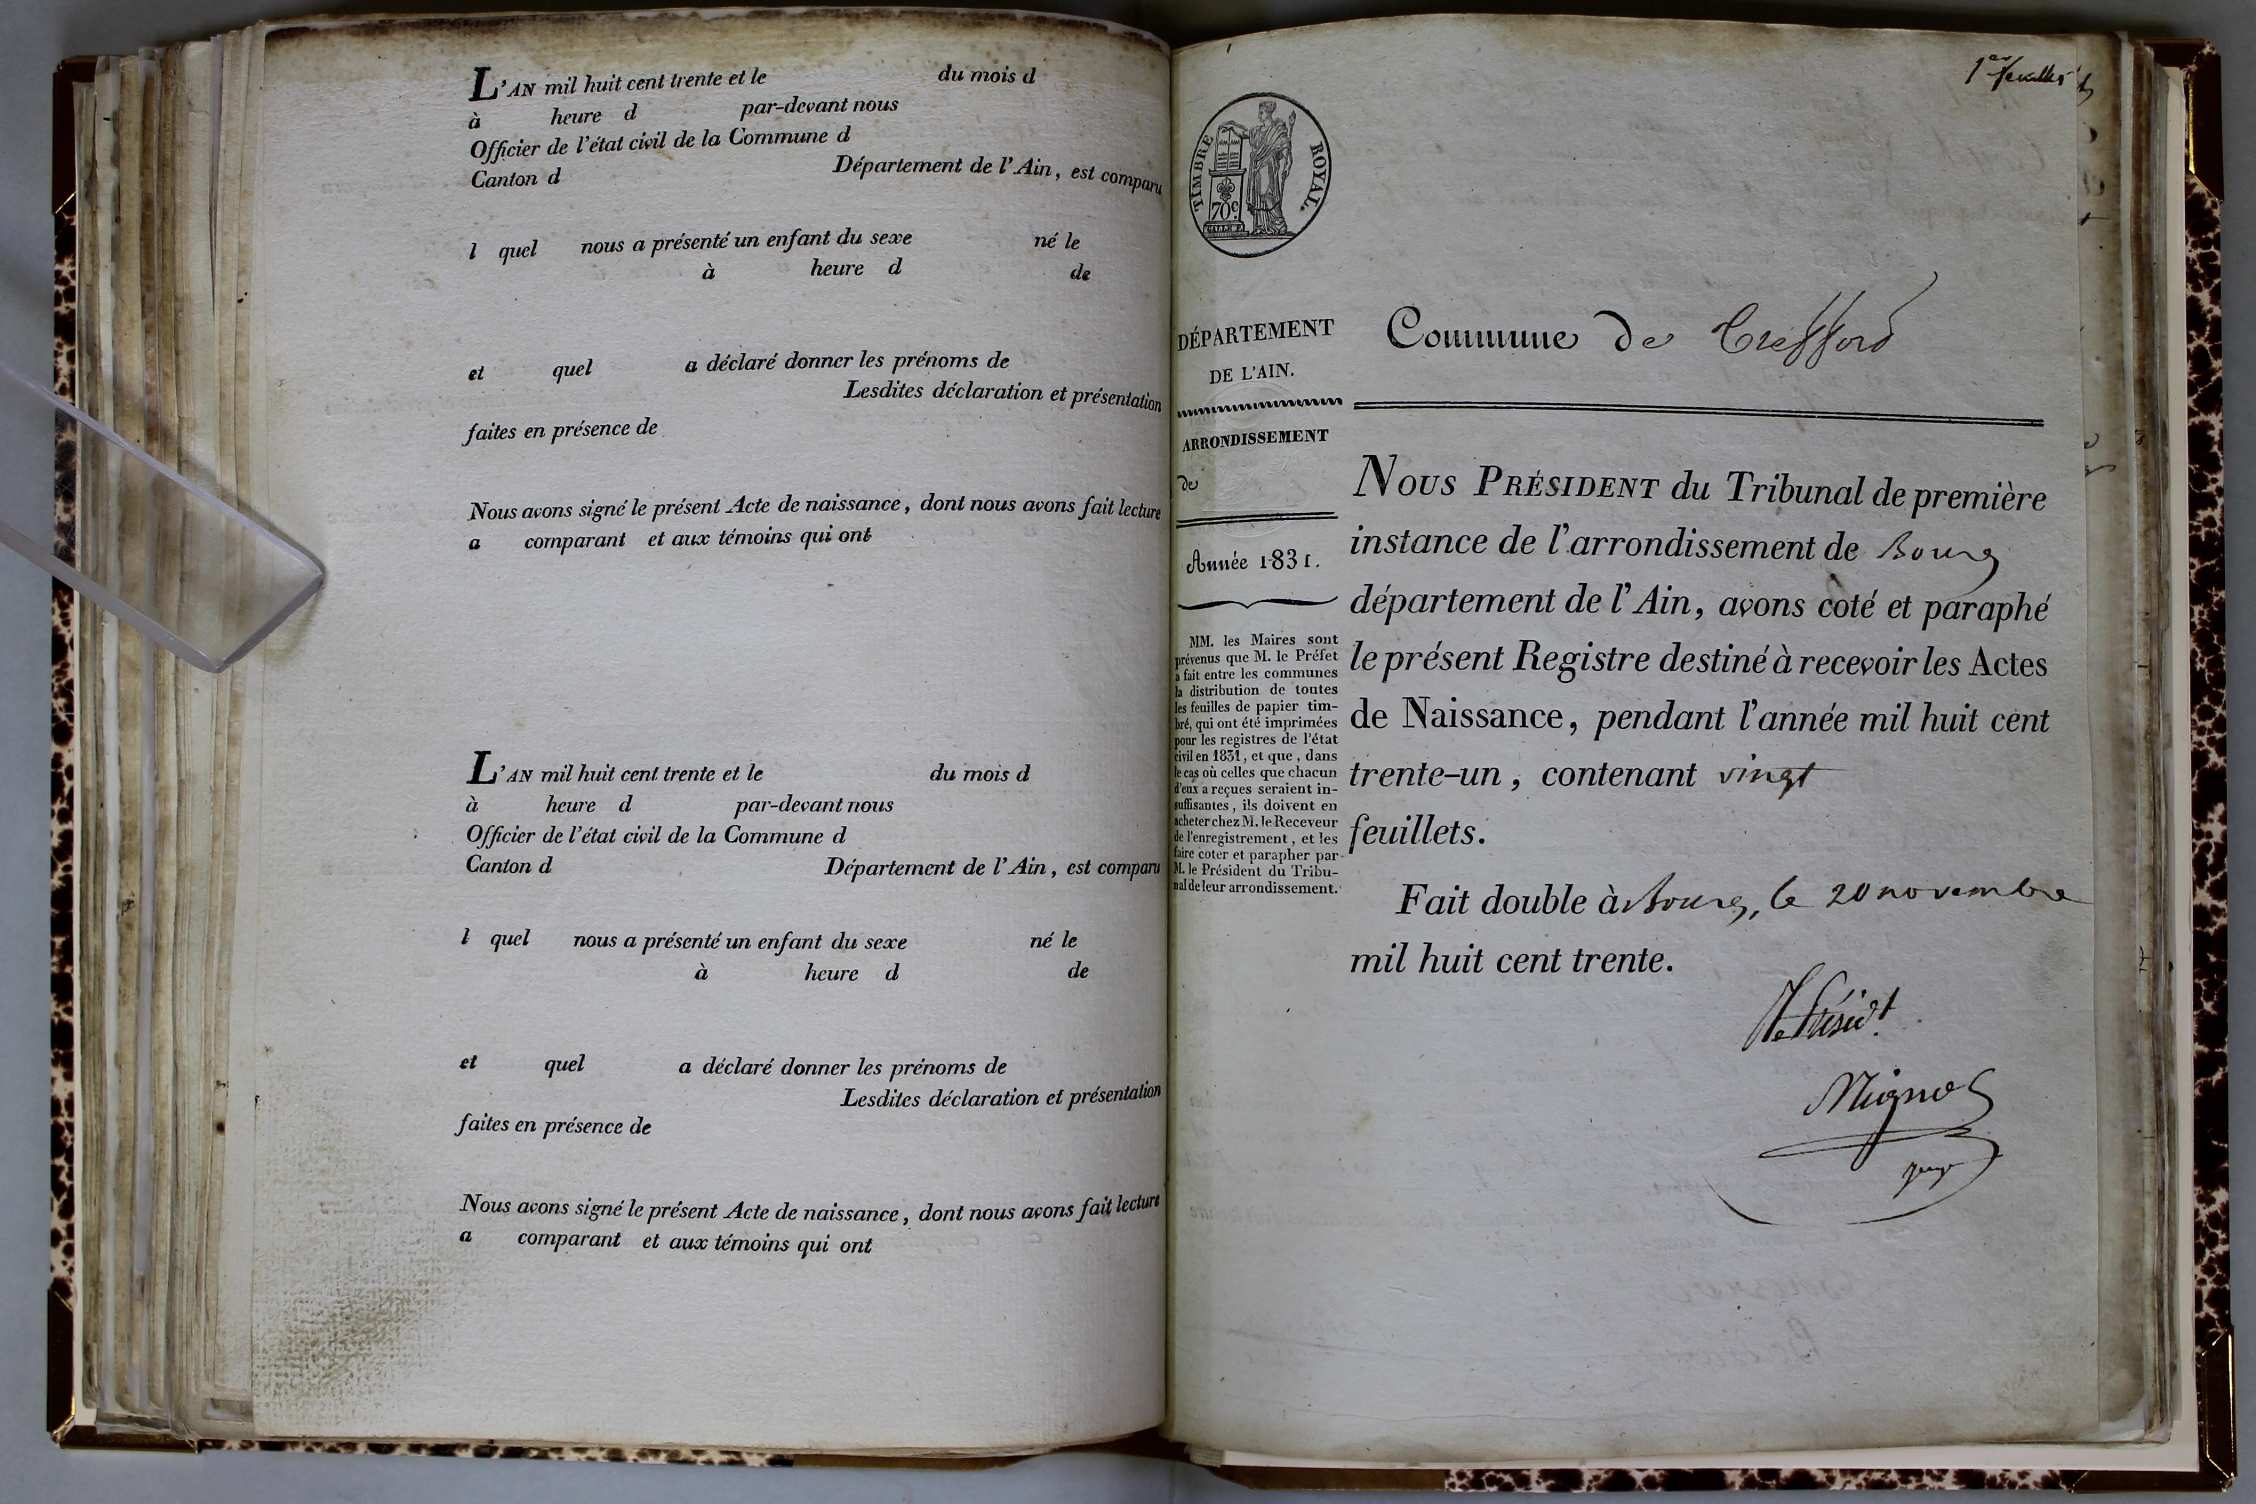 L'AN mil huit cent trente et le du mois d
à heure d par-devant nous
Officier de l'état civil de la Commune d
Canton d Département de l'Ain, est comparu
l quel nous a présenté un enfant du sexe né le
à heure d de
et quel a déclaré donner les prénoms de
Lesdites déclaration et présentation
faites en présence de
Nous avons signé le présent Acte de naissance, dont nous avons fait lecture
a comparant et aux témoins qui ont
L'AN mil huit cent trente et le du mois d
à heure d par-devant nous
Officier de l'état civil de la Commune d
Canton d Département de l'Ain, est comparu
l quel nous a présenté un enfant du sexe né le
à heure d de
et quel a déclaré donner les prénoms de
Lesdites déclaration et présentation
faites en présence de
Nous avons signé le présent Acte de naissance, dont nous avons fait lecture
a comparant et aux témoins qui ont
1er feuillet
TIMBRE ROYAL.
70c.
DÉPARTEMENT
DE L'AIN.
ARRONDISSEMENT
de
Année 1831.
MM. les Maires sont
prévenus que M. le Préfet
a fait entre les communes
la distribution de toutes
les feuilles de papier tim-
bré, qui ont été imprimées
pour les registres de l'état
civil en 1831, et que, dans
le cas où celles que chacun
d'eux a reçues seraient in-
suffisantes, ils doivent en
acheter chez M. le Receveur
de l'enregistrement, et les
faire coter et parapher par
M. le Président du Tribu-
nal de leur arrondissement.
Commune de Trefford
NOUS PRÉSIDENT du Tribunal de première
instance de l'arrondissement de Bourg
département de l'Ain, avons coté et paraphé
le présent Registre destiné à recevoir les Actes
de Naissance, pendant l'année mil huit cent
trente-un, contenant vingt
feuillets.
Fait double à Bourg, le 20 novembre
mil huit cent trente.
Le Présidt.
juge